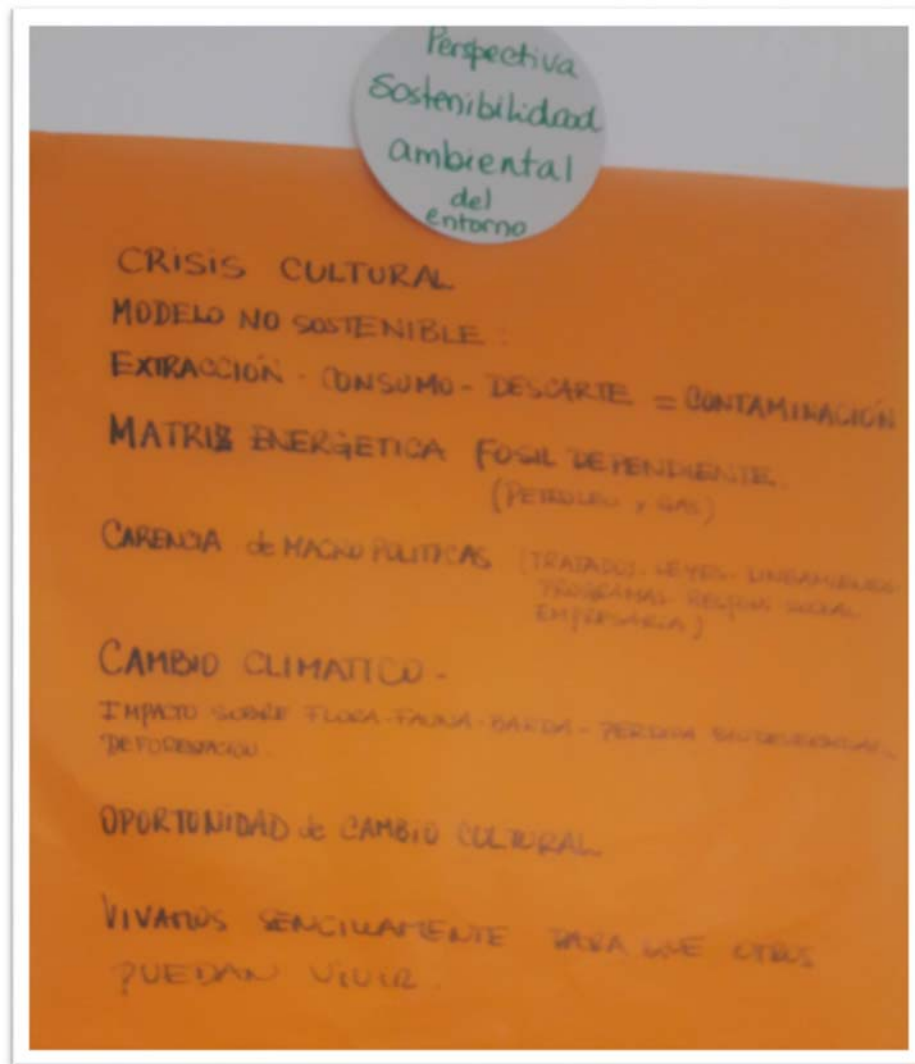 Perspectiva
Sostenibilidad
ambiental
del
entorno
CRISIS CULTURAL
MODELO NO SOSTENIBLE:
EXTRACCIÓN - CONSUMO - DESCARTE = CONTAMINACIÓN
MATRIZ ENERGETICA FOSIL DEPENDIENTE.
(PETROLEO y GAS)
CARENCIA de MACRO POLITICAS (TRATADOS - LEYES - LINEAMIENTOS
PROGRAMAS - RESPON. SOCIAL
EMPRESARIA)
CAMBIO CLIMATICO -
IMPACTO SOBRE FLORA - FAUNA - BARDA - PERDIDA
DEFORESTACIÓN.
OPORTUNIDAD de CAMBIO CULTURAL
VIVAMOS SENCILLAMENTE PARA QUE OTROS
PUEDAN VIVIR.